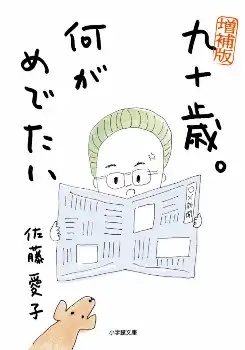 増補版
九十歳。
何が
めでたい
佐藤愛子
○×新聞
小学館文庫